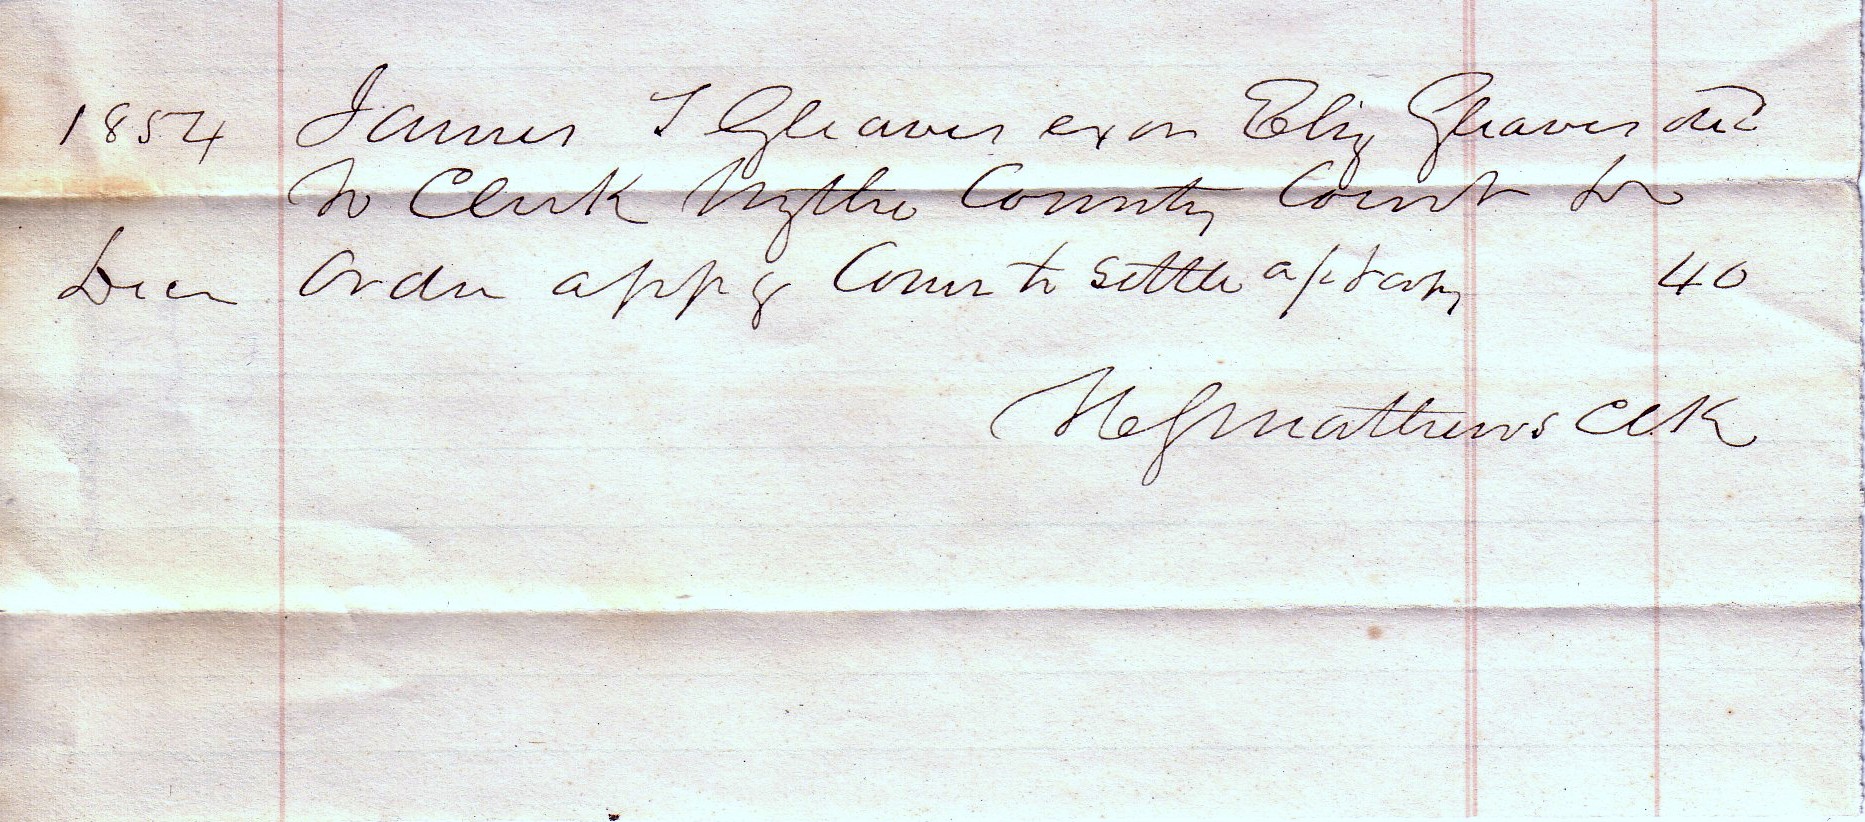 1854 James T Gleaves exor Eliz Gleaves decd
To Clerk Wythe County Court Dr
Decr Order appg Comr to settle a/c & copy 40
Mathews Clk